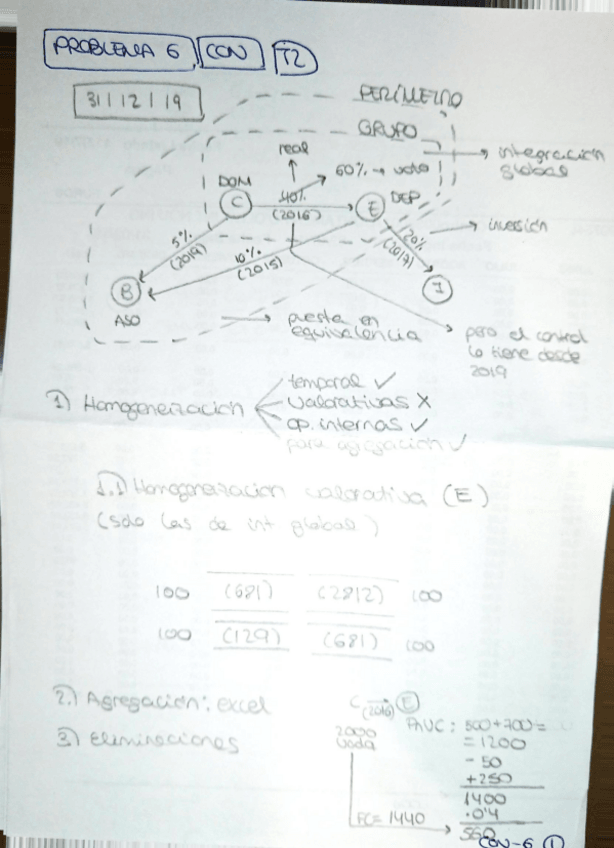 PROBLEMA 6 CON T2
31/12/19
PERÍMETRO
GRUPO
integración global
real
60% → voto
DOM
C
40%
(2016)
DEP
E
5%
(2019)
10%
(2015)
20%
(2017)
inversión
B
ASO
I
puesta en equivalencia
pero el control lo tiene desde 2019
1) Homogeneización
temporal ✓
valorativas X
op. internas ✓
para agregación ✓
1.1) Homogeneización valorativa (E)
(Solo las de int global)
100 (681) (2812) 100
100 (129) (681) 100
2.) Agregación: excel
3) Eliminaciones
C (2016) E
2000
FC= 1440
PAVC: 500+700=
=1200
- 50
+250
1400
·0'4
560
CON-6 1